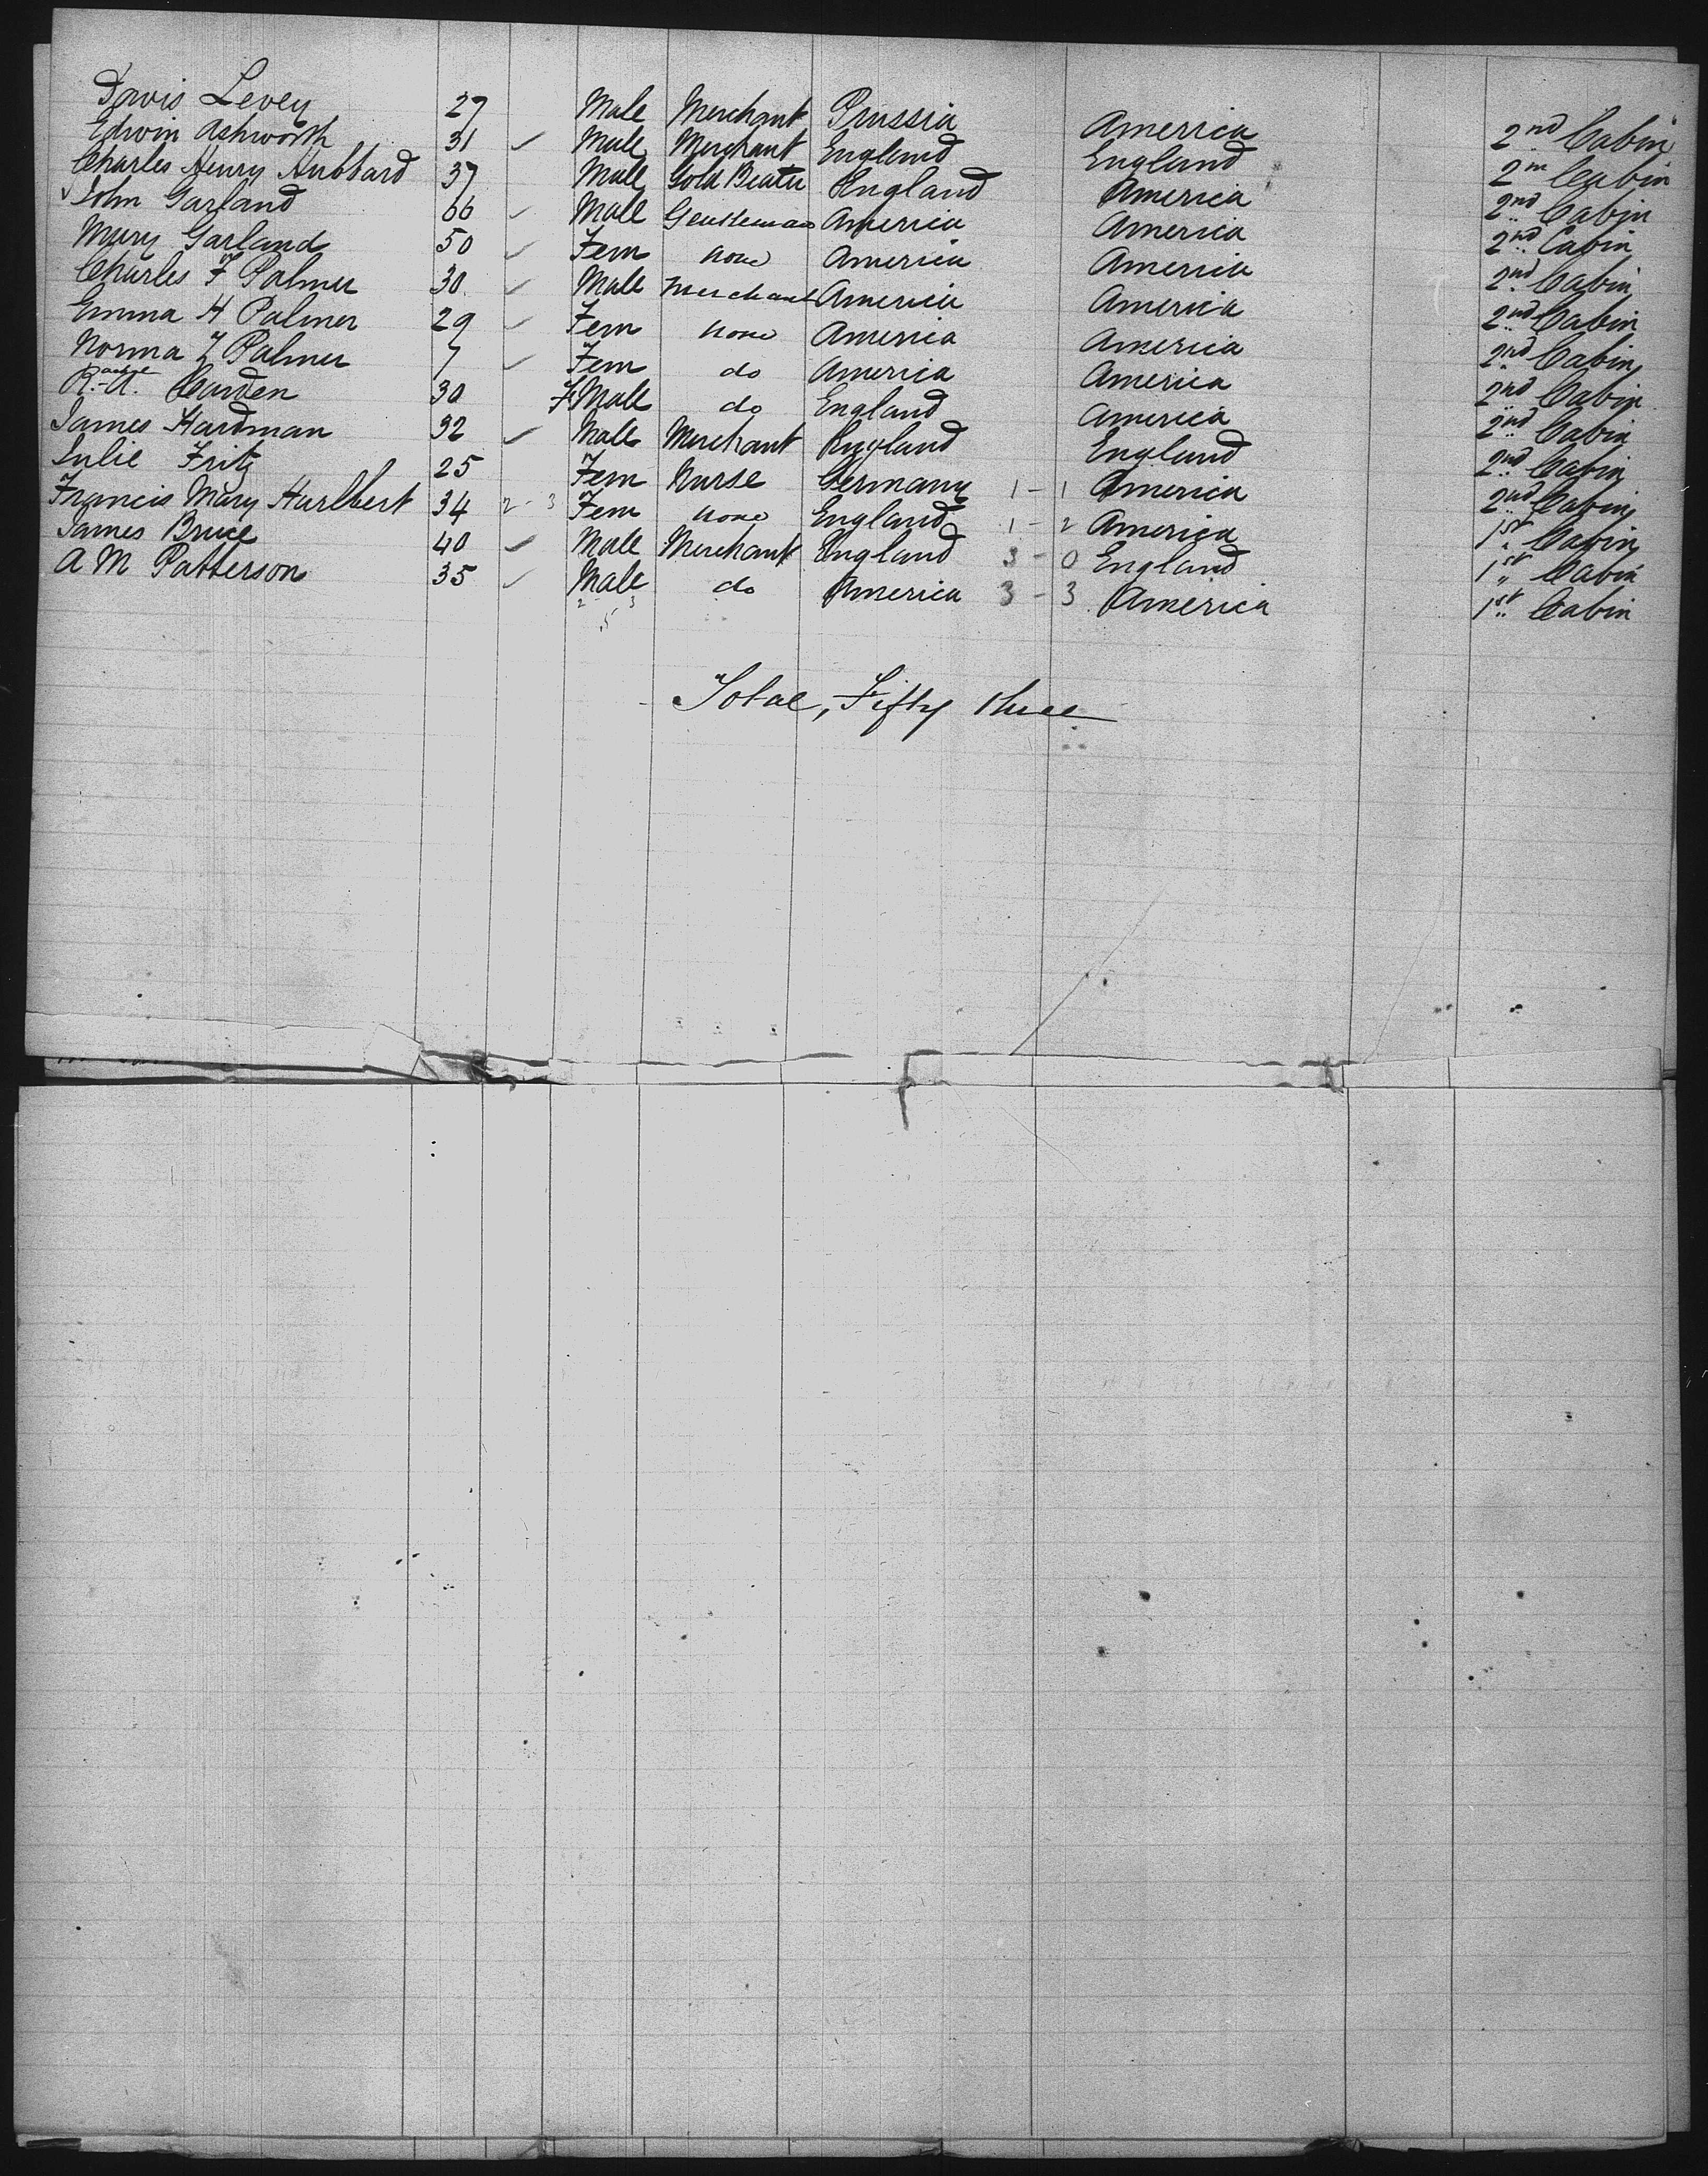 Davis Levey 27 Male Merchant Prussia America 2nd Cabin
Edwin Ashworth 31 ✓ Male Merchant England England 2nd Cabin
Charles Henry Hubbard 37 Male Gold Beater England America 2nd Cabin
John Garland 66 ✓ Male Gentleman America America 2nd Cabin
Mary Garland 50 ✓ Fem none America America 2nd Cabin
Charles F Palmer 30 ✓ Male Merchant America America 2nd Cabin
Emma H Palmer 29 ✓ Fem none America America 2nd Cabin
Norma Z Palmer 7 ✓ Fem do America America 2nd Cabin
R. A. Carden 30 FMale do England America 2nd Cabin
James Hardman 32 ✓ Male Merchant England England 2nd Cabin
Julie Fritz 25 Fem Nurse Germany 1 - 1 America 2nd Cabin
Francis Mary Hurlbert 34 2 - 3 Fem none England 1 - 2 America 1st Cabin
James Bruce 40 ✓ Male Merchant England 3 - 0 England 1st Cabin
A M Patterson 35 ✓ Male do America 3 - 3 America 1st Cabin
Total, Fifty three